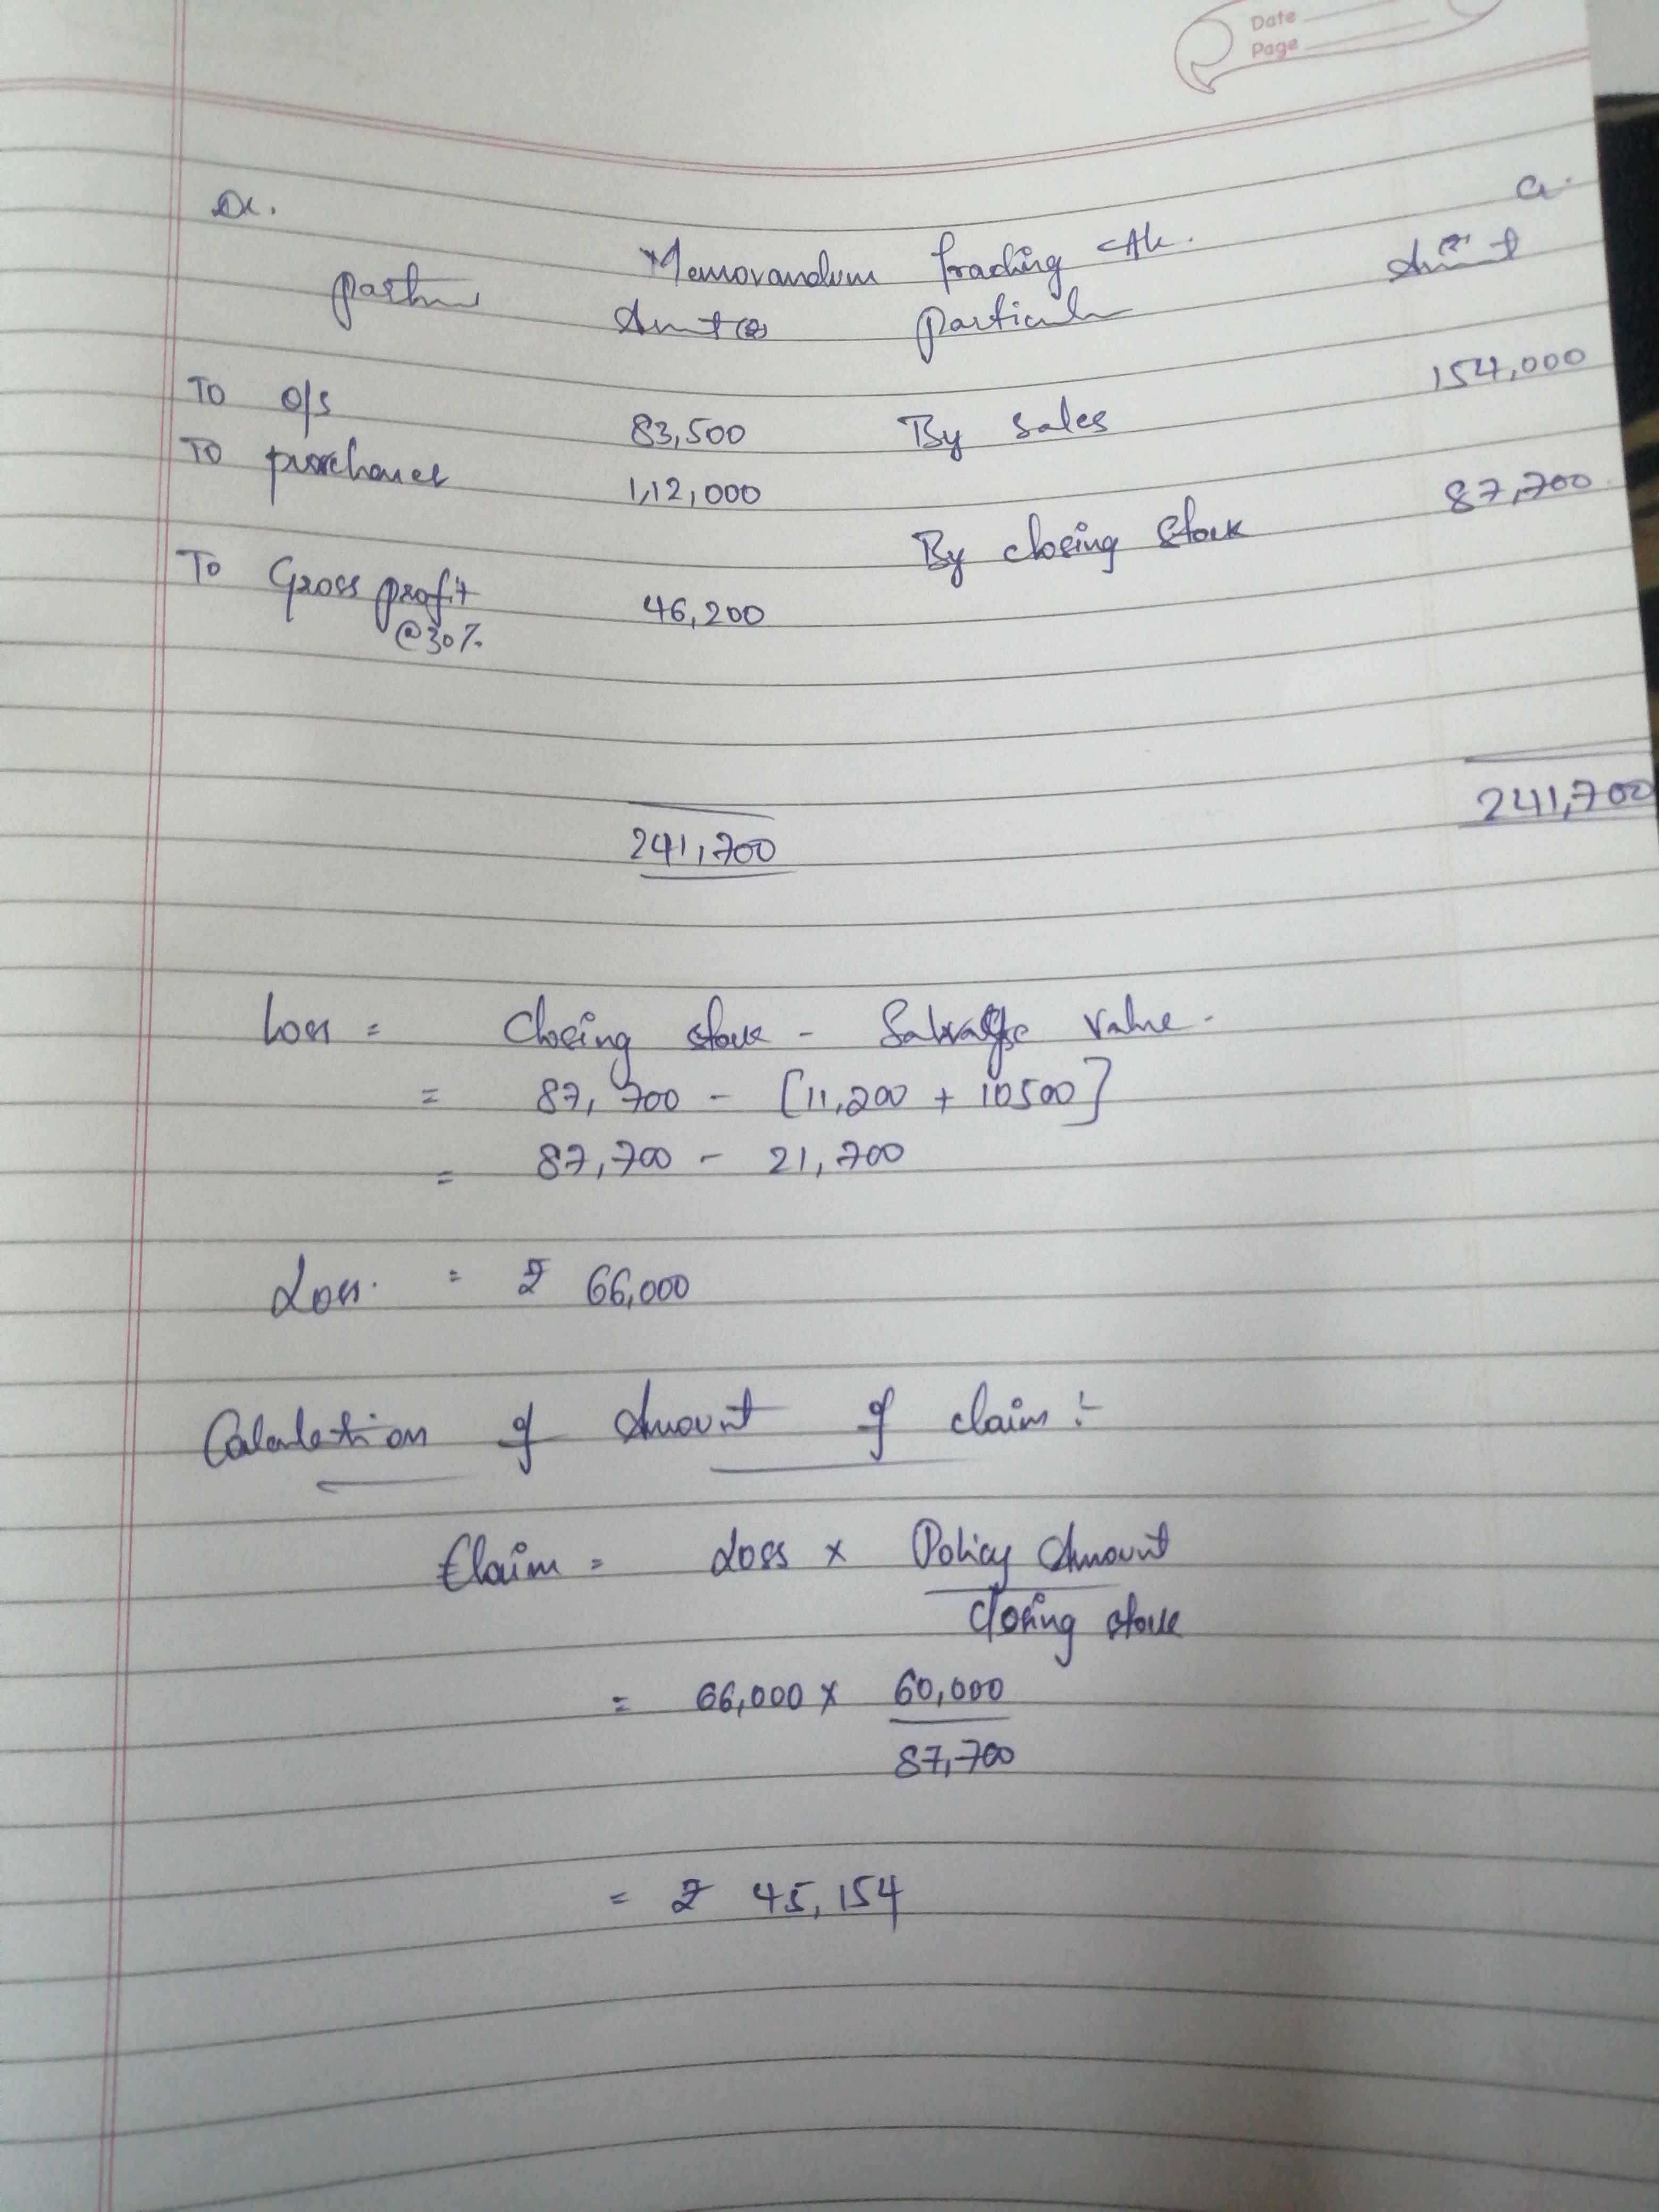 Date
Page
Dr.
Cr.
Memorandum Trading A/c.
Amt(₹) Particul
Amt (₹)
To o/s 83,500 By Sales 154,000
To purchases 1,12,000
By closing stock 87,700
To Gross profit 46,200
@30%
241,700 241,700
Loss = Closing stock - Salvage Value.
= 87,700 - [11,200 + 10500]
= 87,700 - 21,700
Loss. = ₹ 66,000
Calculation of Amount of claim :-
Claim = Loss x Policy Amount
closing stock
= 66,000 x 60,000
87,700
= ₹ 45,154